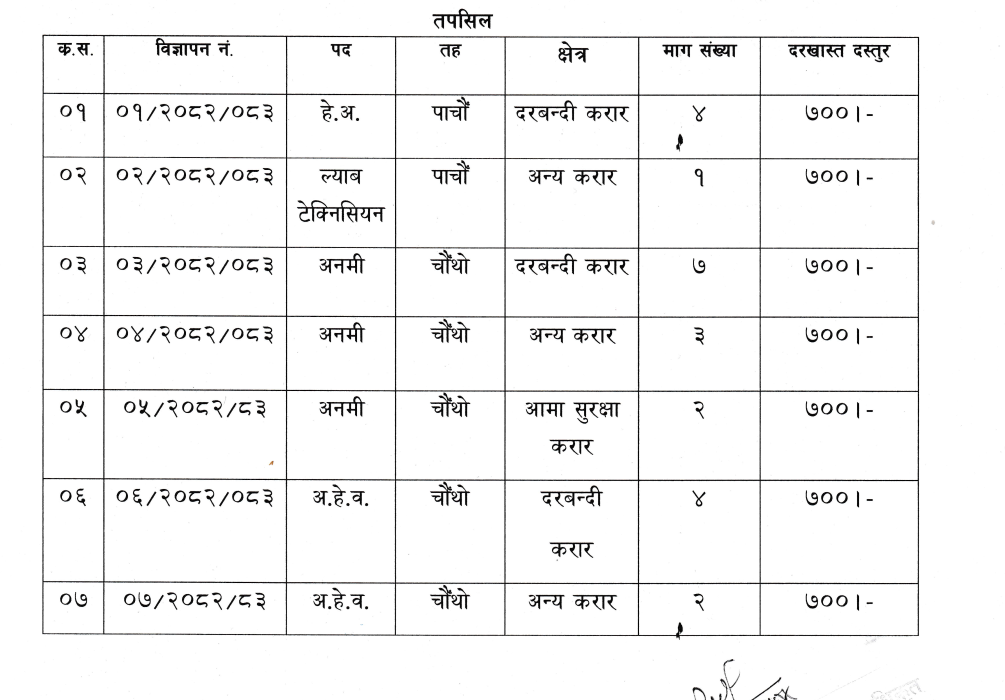 तपसिल
क.स. विज्ञापन नं. पद तह क्षेत्र माग संख्या दरखास्त दस्तुर
०१ ०१/२०८२/०८३ हे.अ. पाचौं दरबन्दी करार ४ ७००।-
०२ ०२/२०८२/०८३ ल्याब पाचौं अन्य करार १ ७००।-
टेक्निसियन
०३ ०३/२०८२/०८३ अनमी चौंथो दरबन्दी करार ७ ७००।-
०४ ०४/२०८२/०८३ अनमी चौंथो अन्य करार ३ ७००।-
०५ ०५/२०८२/८३ अनमी चौंथो आमा सुरक्षा २ ७००।-
करार
०६ ०६/२०८२/०८३ अ.हे.व. चौंथो दरबन्दी ४ ७००।-
करार
०७ ०७/२०८२/८३ अ.हे.व. चौंथो अन्य करार २ ७००।-